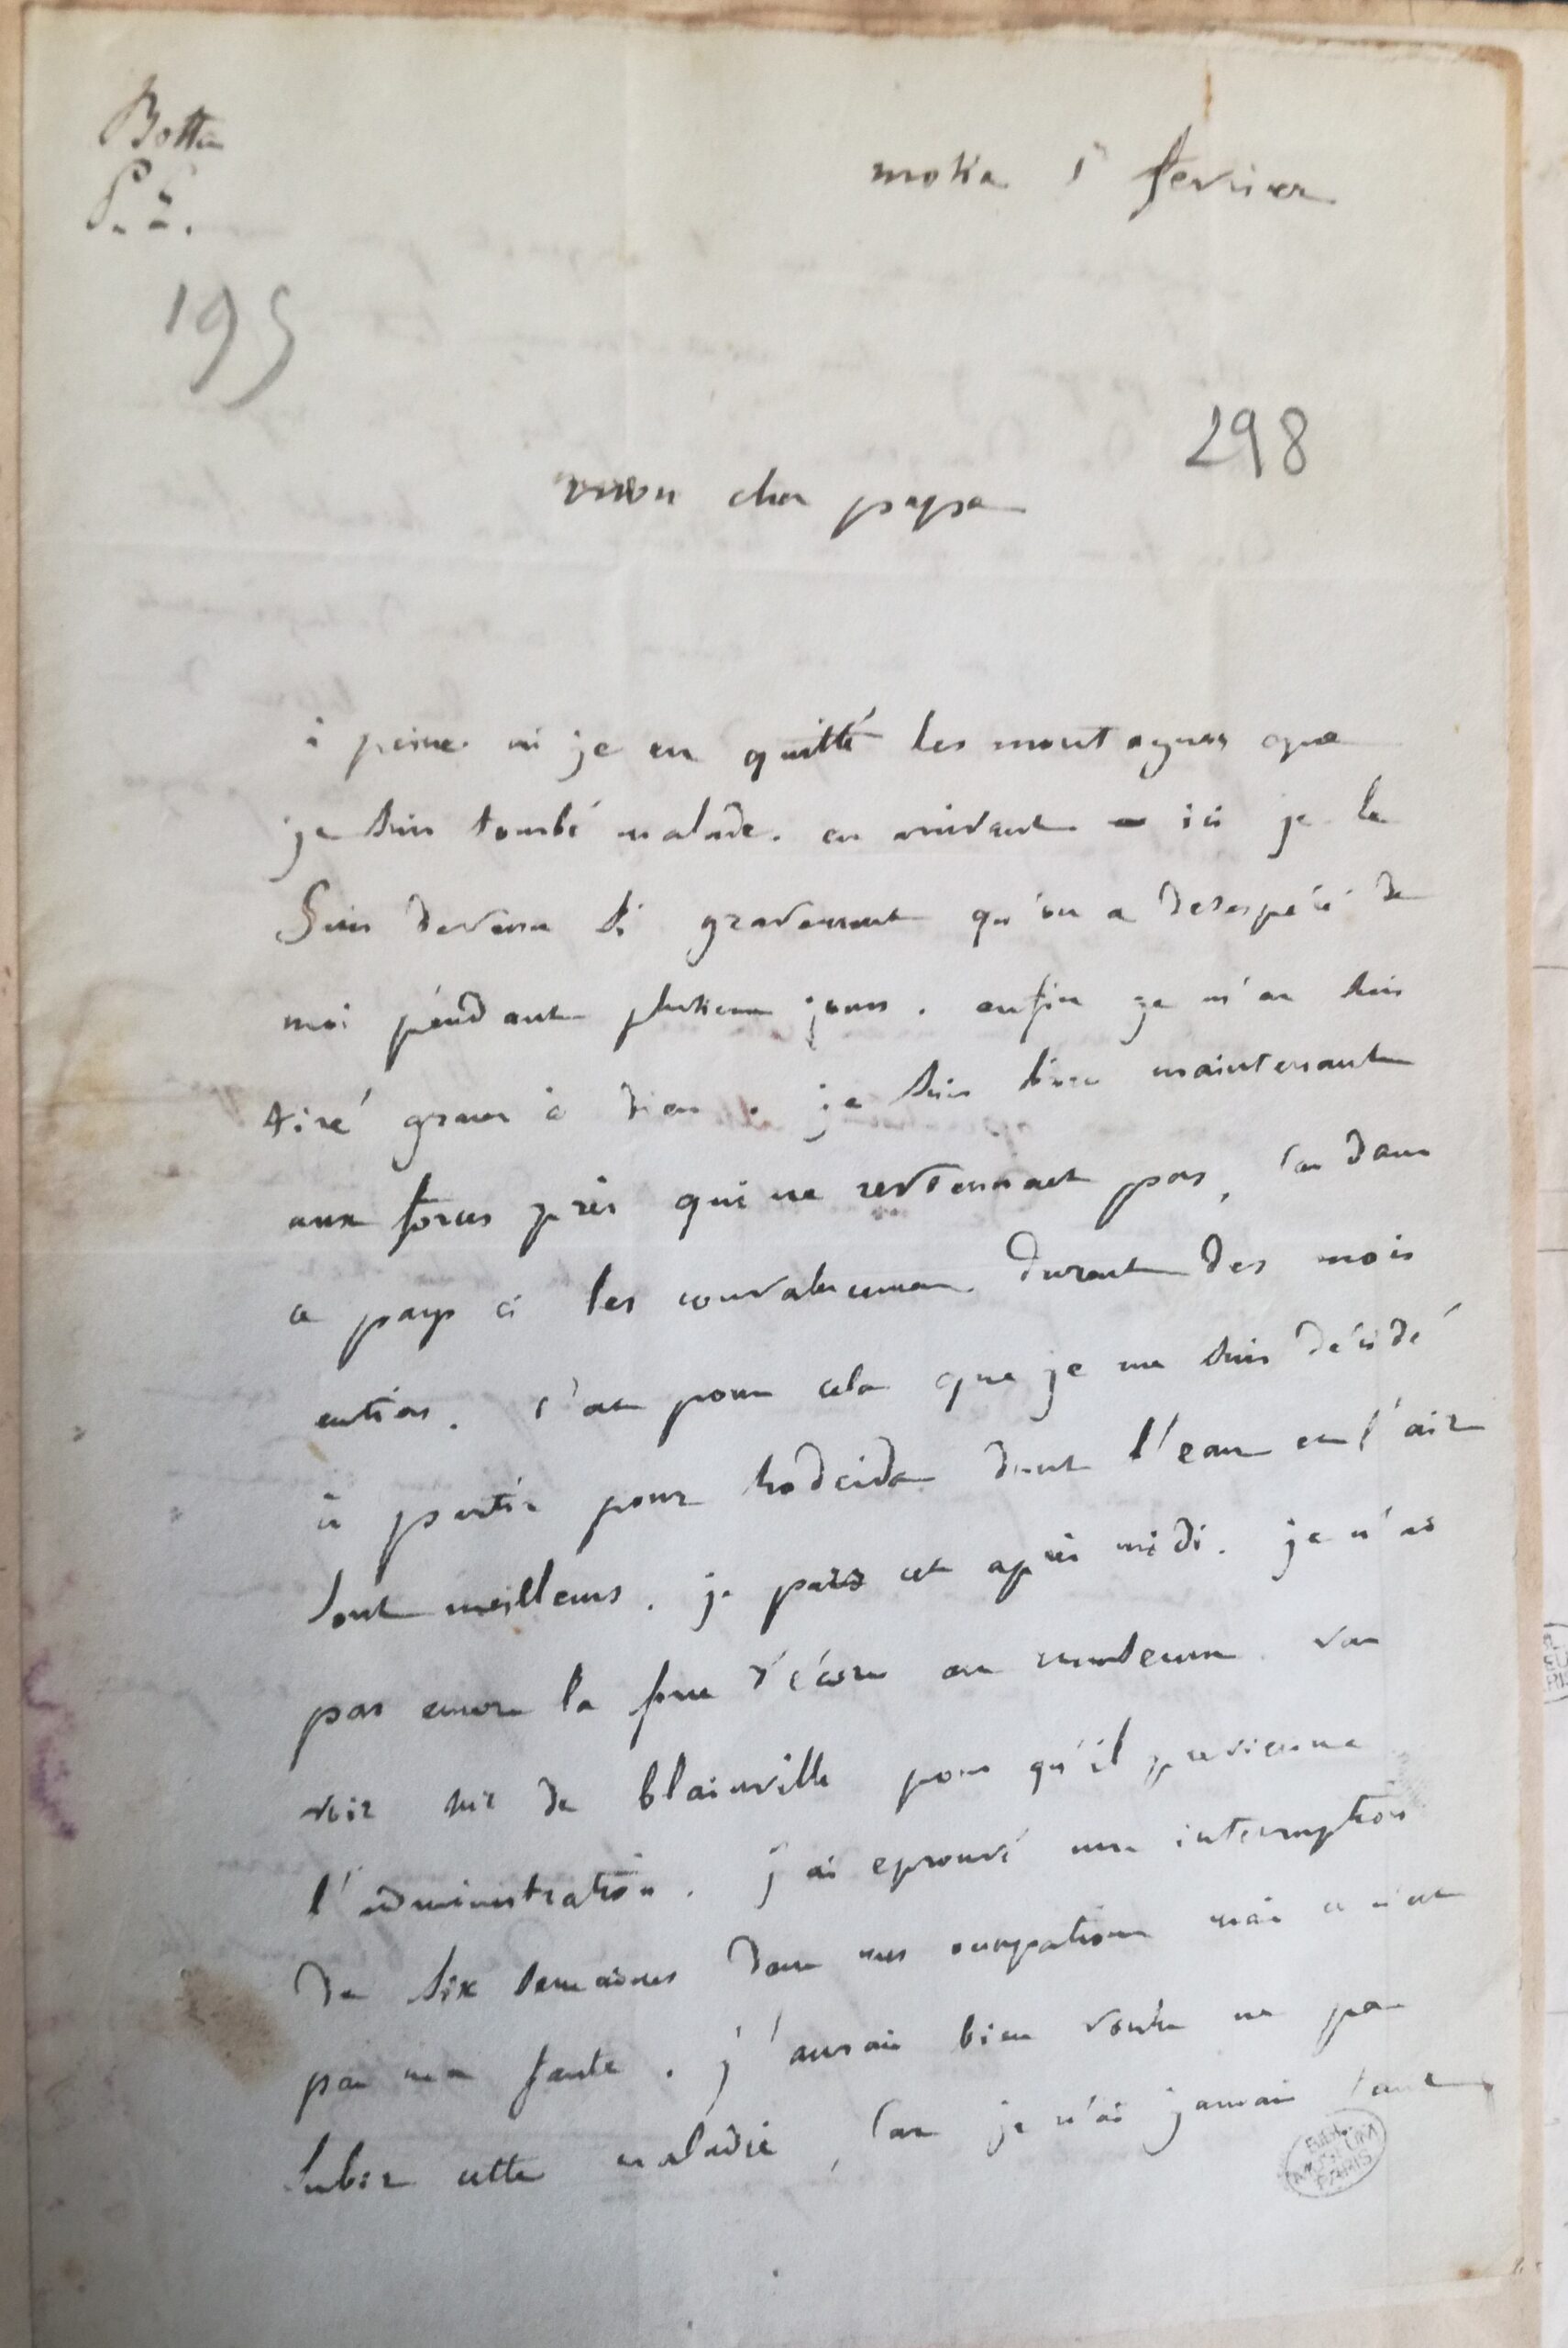 Botta
P. E.
moka 1er fevrier
195
298
mon cher papa
à peine ai je eu quitté les montagnes que
je suis tombé malade. en arrivant ici je le
suis devenu si gravement qu'on a desespéré de
moi pendant plusieurs jours. enfin je m'en suis
tiré graces à dieu. je suis bien maintenant
aux forces près qui ne reviennent pas, car dans
ce pays ci les convalescences durent des mois
entiers. c'est pour cela que je me suis décidé
à partir pour hodeida dont l'eau et l'air
sont meilleurs. je pars cet après midi. je n'ai
pas encore la force d'écrire au museum. va
voir mr de blainville pour qu'il previenne
l'administration. j'ai eprouvé une interruption
de six semaines dans mes occupations mais ce n'est
pas ma faute. j'aurais bien voulu ne pas
subir cette maladie, car je n'ai jamais tant
BIBL.
MUSEUM
PARIS